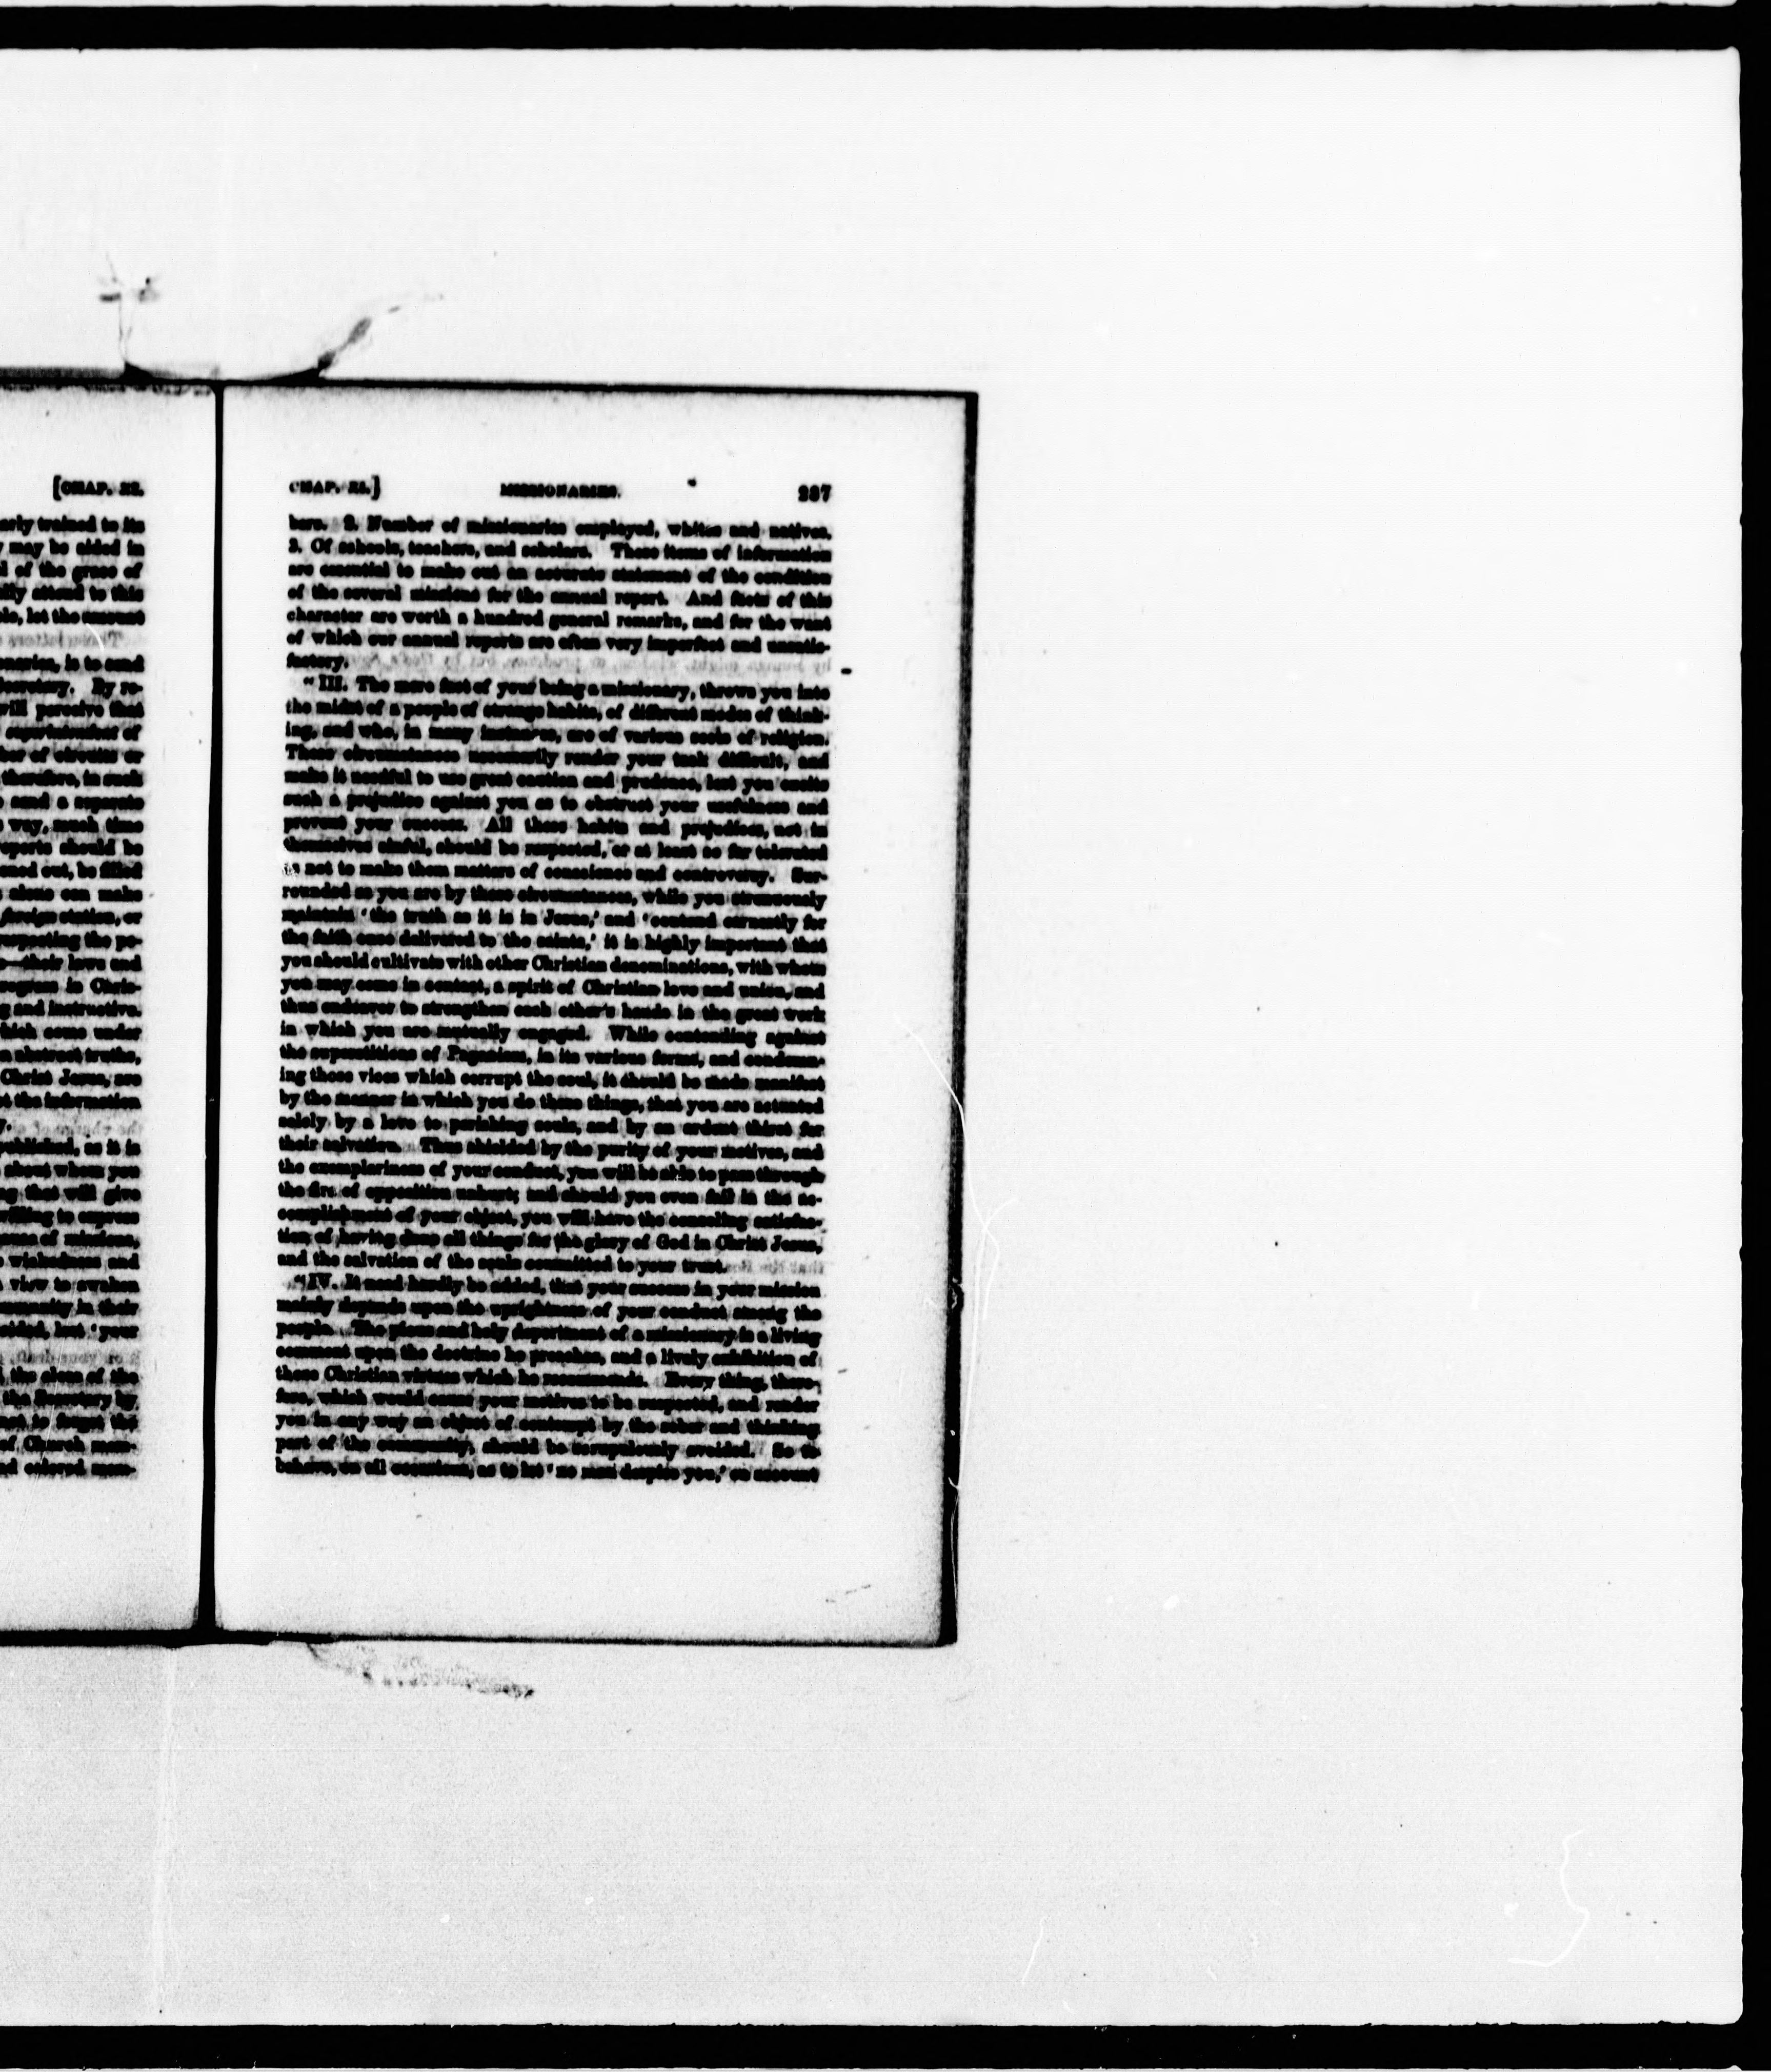 [CHAP. XI.
arly trained to its
may be aided in
of the grace of
ally attend to this
let the amount
onaries, is to send
Secretary. By re-
will perceive that
superintendent of
ber of circuits or
therefore, in such
send a separate
way, much time
reports should be
oned out, be filled
alone can make
foreign station, or
respecting the pe-
—their laws and
progress in Chris-
g and instructive.
hich come under
n abstract truths,
Christ Jesus, are
t the information
y.
published, as it is
about whom you
ng that will give
willing to express
of missions,
wickedness and
view to awaken
in their
lest 'your
the close of the
the Secretary by
not to forget the
of Church mem-
d colored mem-
CHAP. XI.] MISSIONARIES. 237
bers. 2. Number of missionaries employed, whites and natives.
3. Of schools, teachers, and scholars. These items of information
are essential to make out an accurate statement of the condition
of the several missions for the annual report. And facts of this
character are worth a hundred general remarks, and for the want
of which our annual reports are often very imperfect and unsatis-
factory.
"III. The mere fact of your being a missionary, throws you into
the midst of a people of strange habits, of different modes of think-
ing, and who, in many instances, are of various sects of religion.
These circumstances necessarily render your task difficult, and
make it needful to use great caution and prudence, lest you excite
such a prejudice against you as to obstruct your usefulness and
prevent your success. All these habits and prejudices, not in
themselves sinful, should be respected, or at least so far tolerated
as not to make them matters of conscience and controversy. Sur-
rounded as you are by these circumstances, while you strenuously
maintain 'the truth as it is in Jesus,' and 'contend earnestly for
the faith once delivered to the saints,' it is highly important that
you should cultivate with other Christian denominations, with whom
you may come in contact, a spirit of Christian love and union, and
thus endeavor to strengthen each other's hands in the great work
in which you are mutually engaged. While contending against
the superstitions of Paganism, in its various forms, and condemn-
ing those vices which corrupt the soul, it should be made manifest
by the manner in which you do these things, that you are actuated
solely by a love to perishing souls, and by an ardent thirst for
their salvation. Thus shielded by the purity of your motives, and
the exemplariness of your conduct, you will be able to pass through
the fire of opposition unhurt; and should you even fail in the ac-
complishment of your object, you will have the consoling satisfac-
tion of having done all things for the glory of God in Christ Jesus,
and the salvation of the souls committed to your trust.
"IV. It need hardly be added, that your success in your mission
mainly depends upon the uprightness of your conduct among the
people. The pious and holy deportment of a missionary is a living
comment upon the doctrine he preaches, and a lively exhibition of
those Christian virtues which he recommends. Every thing, there-
fore, which would cause your motives to be suspected, and render
you in any way an object of contempt by the sober and thinking
part of the community, should be scrupulously avoided. So to
behave, on all occasions, as to let 'no man despise you,' on account